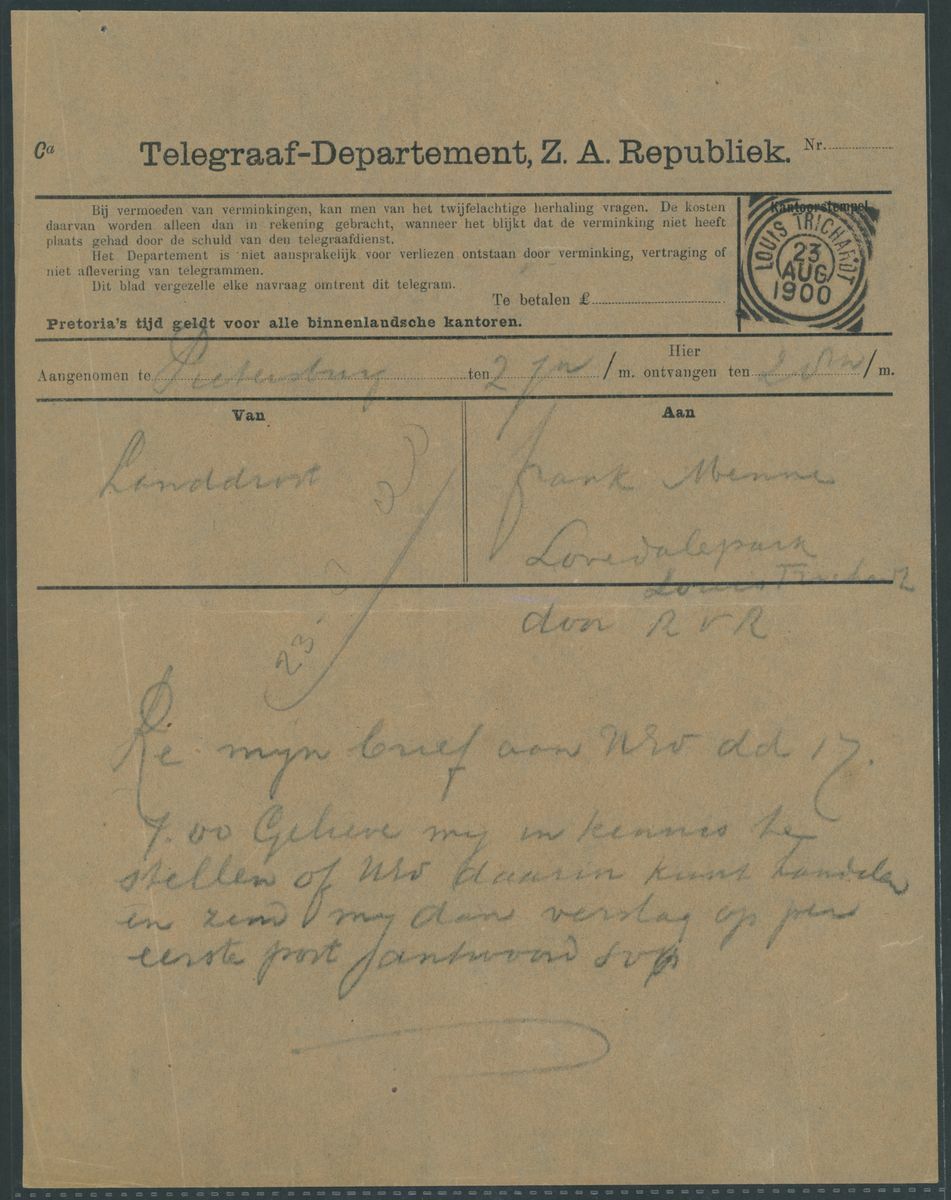 Ca Telegraaf-Departement, Z. A. Republiek. Nr.
Bij vermoeden van verminkingen, kan men van het twijfelachtige herhaling vragen. De kosten
daarvan worden alleen dan in rekening gebracht, wanneer het blijkt dat de verminking niet heeft
plaats gehad door de schuld van den telegraafdienst.
Het Departement is niet aansprakelijk voor verliezen ontstaan door verminking, vertraging of
niet aflevering van telegrammen.
Dit blad vergezelle elke navraag omtrent dit telegram.
Te betalen £
Pretoria's tijd geldt voor alle binnenlandsche kantoren.
Kantoorstempel
LOUIS TRICHARDT
23
AUG
1900
Hier
Aangenomen te Pietersburg ten 2 /m. ontvangen ten 2 /m.
Van
Landdrost
23
Aan
Frank Menne
Lovedalepark
Louis Trichardt
door R v R
Re mijn brief aan UEd dd 17.
7.00 Gelieve mij in kennis te
stellen of UEd daarin kunt handelen
en zend mij dan verslag op per
eerste post antwoord svp